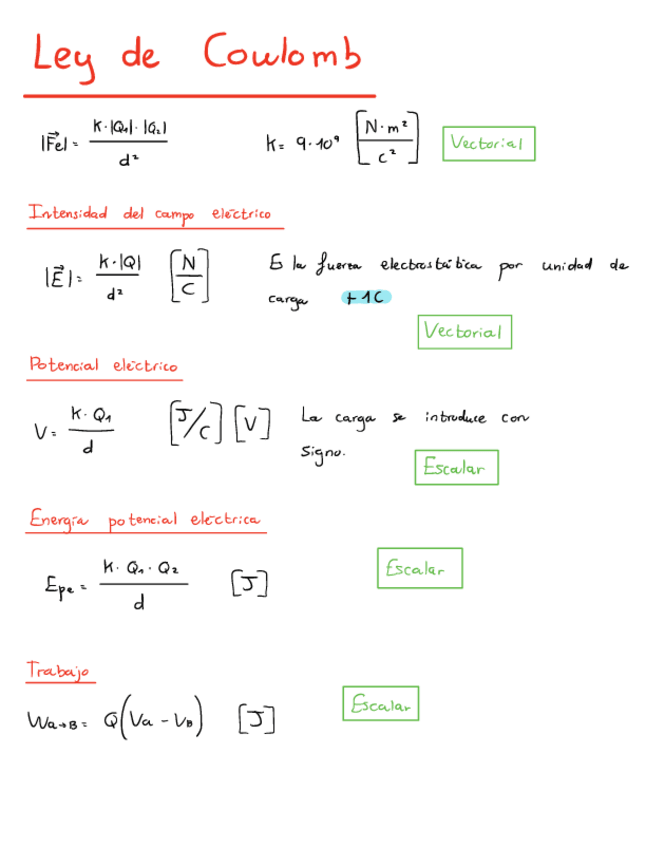 Ley de Coulomb
|F⃗e| = K·|Q₁|·|Q₂| / d²   K = 9·10⁹ [N·m² / C²]   Vectorial
Intensidad del campo eléctrico
|E⃗| = K·|Q| / d²   [N / C]   Es la fuerza electrostática por unidad de
carga +1C
Vectorial
Potencial eléctrico
V = K·Q₁ / d   [J/C] [V]   La carga se introduce con
signo.
Escalar
Energía potencial eléctrica
Epe = K·Q₁·Q₂ / d   [J]   Escalar
Trabajo
Wa→B = Q(Va - VB)   [J]   Escalar